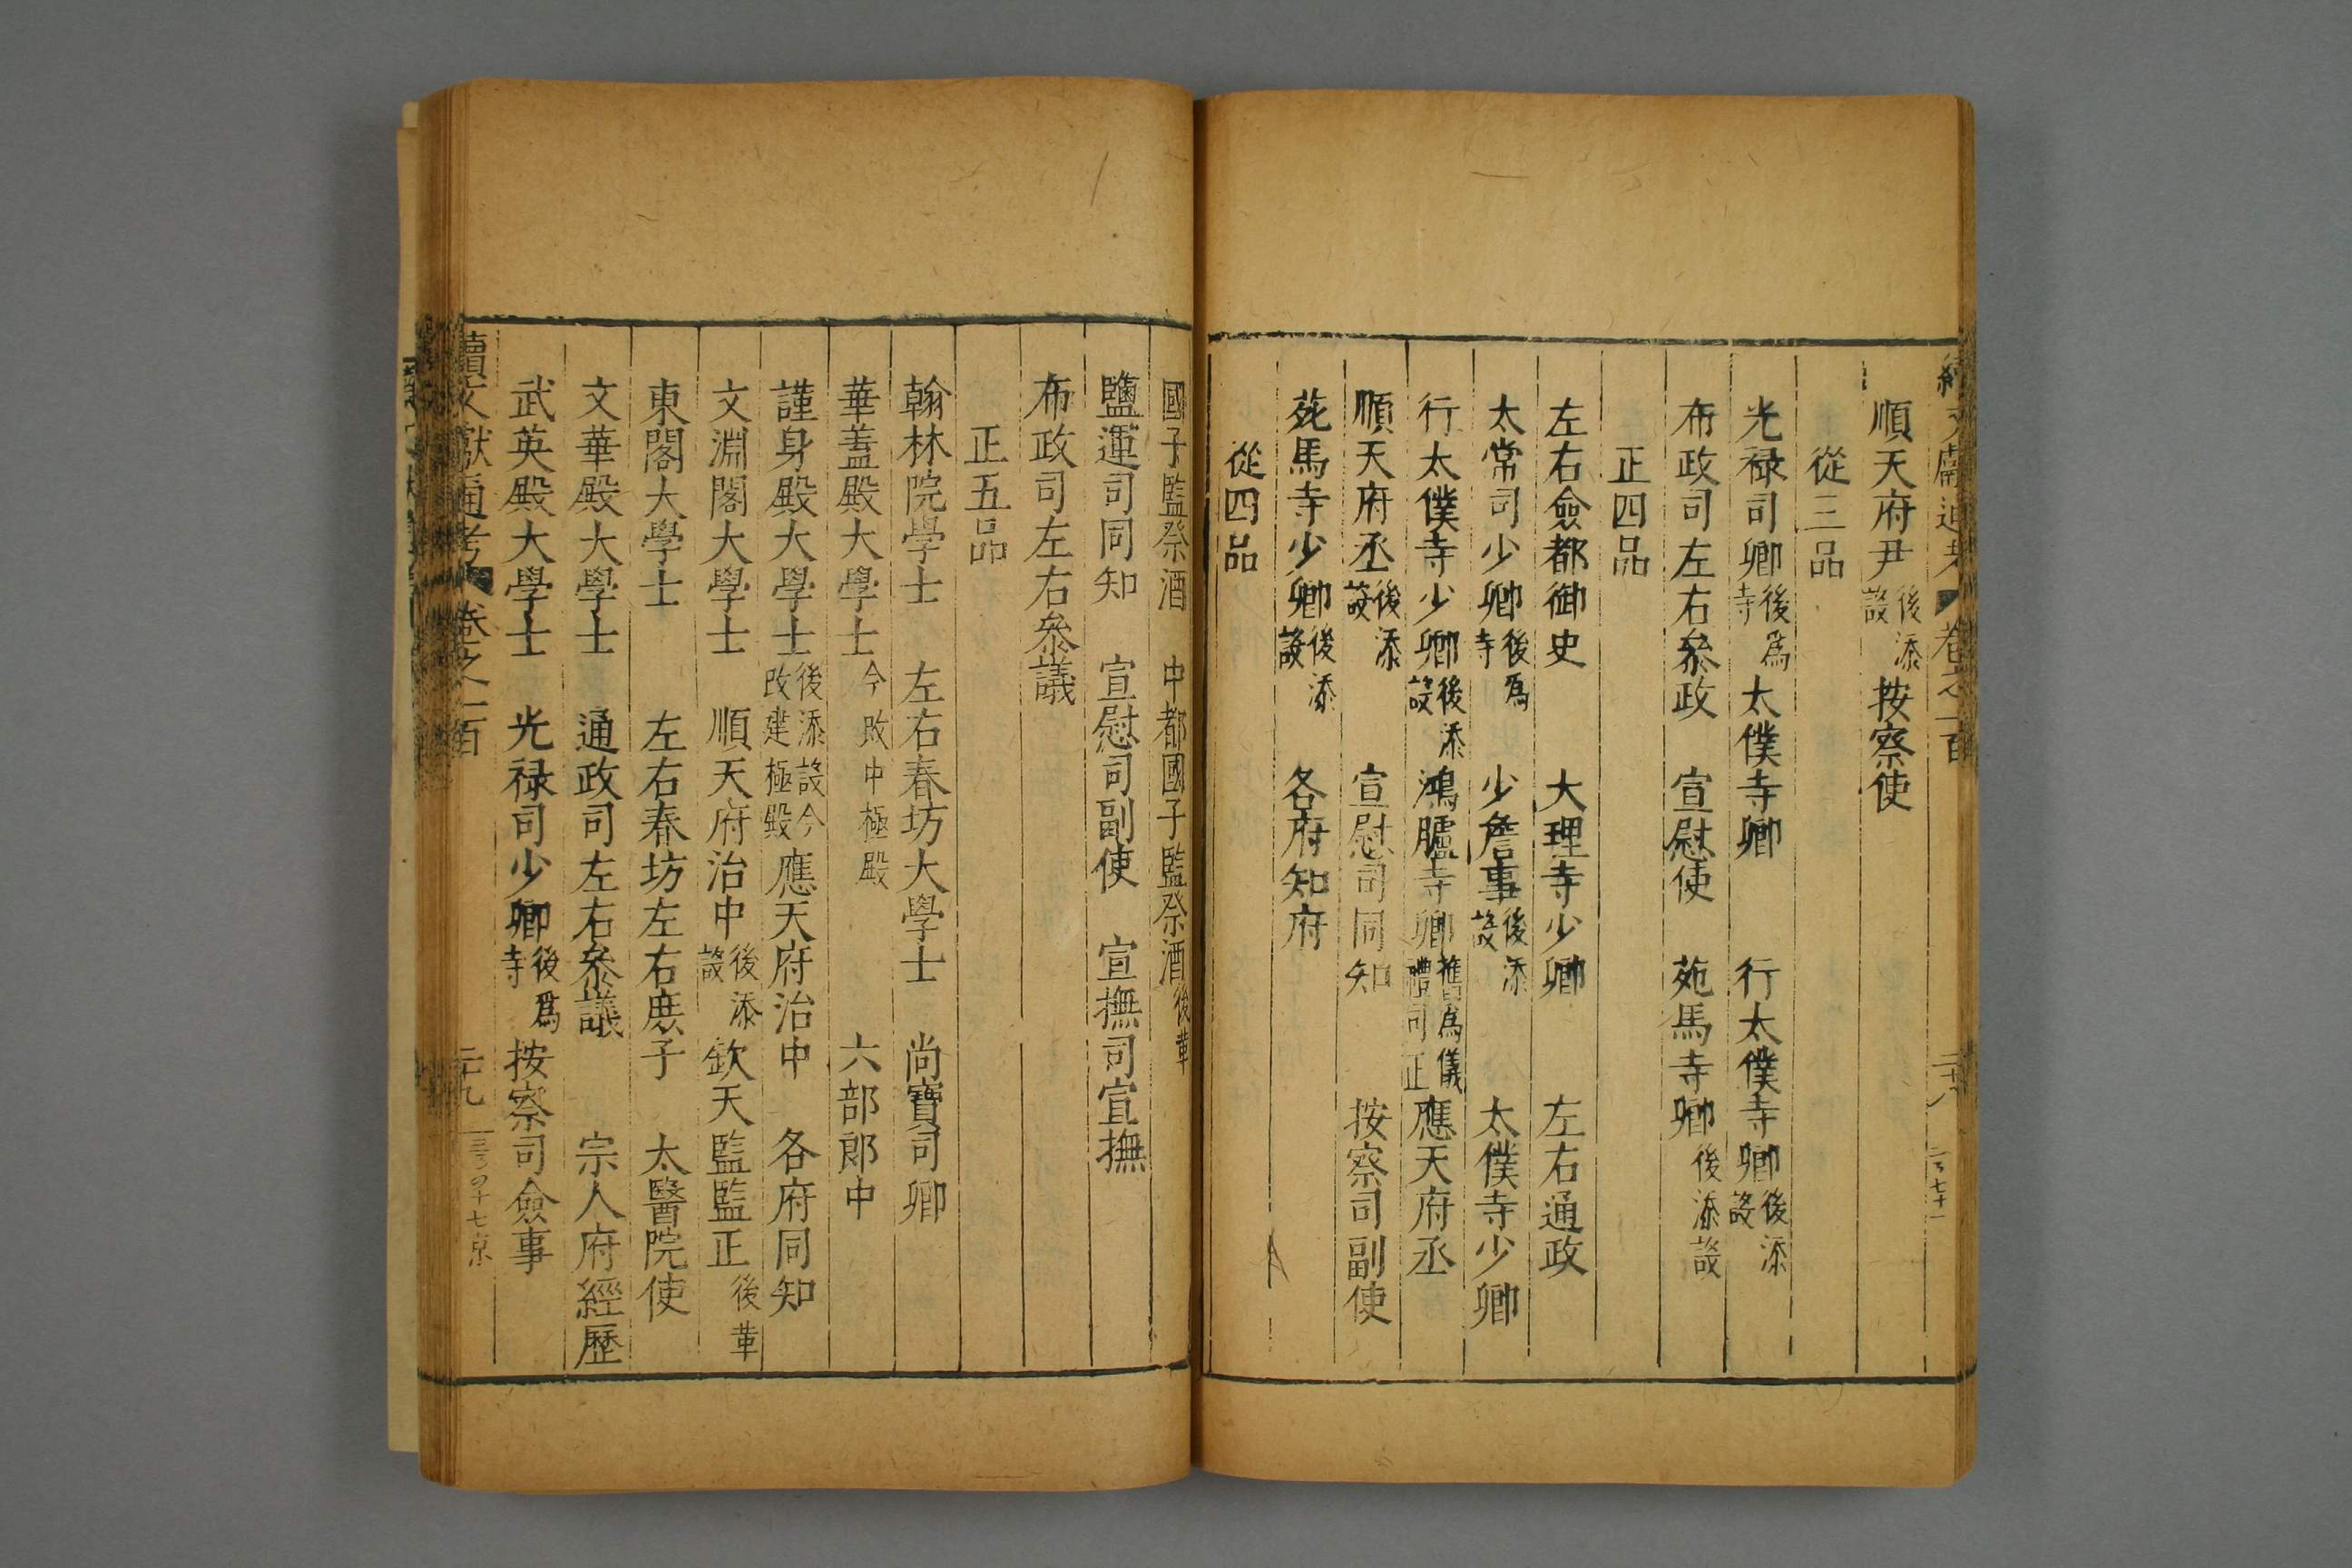 續文獻通考 卷之一百 二十八
順天府尹後添設 按察使
從三品
光禄司卿後爲寺 太僕寺卿 行太僕寺卿後添設
布政司左右叅政 宣慰使 苑馬寺卿後添設
正四品
左右僉都御史 大理寺少卿 左右通政
太常司少卿後爲寺 少詹事後添設 太僕寺少卿
行太僕寺少卿後添設 鴻臚寺卿舊爲儀禮司正 應天府丞
順天府丞後添設 宣慰司同知 按察司副使
苑馬寺少卿後添設 各府知府
從四品
國子監祭酒 中都國子監祭酒後革
鹽運司同知 宣慰司副使 宣撫司宣撫
布政司左右叅議
正五品
翰林院學士 左右春坊大學士 尚寶司卿
華蓋殿大學士今改中極殿 六部郎中
謹身殿大學士後添設今改建極殿 應天府治中 各府同知
文淵閣大學士 順天府治中後添設 欽天監監正後革
東閣大學士 左右春坊左右庶子 太醫院使
文華殿大學士 通政司左右叅議 宗人府經歷
武英殿大學士 光禄司少卿後爲寺 按察司僉事
續文獻通考 卷之一百 二十九